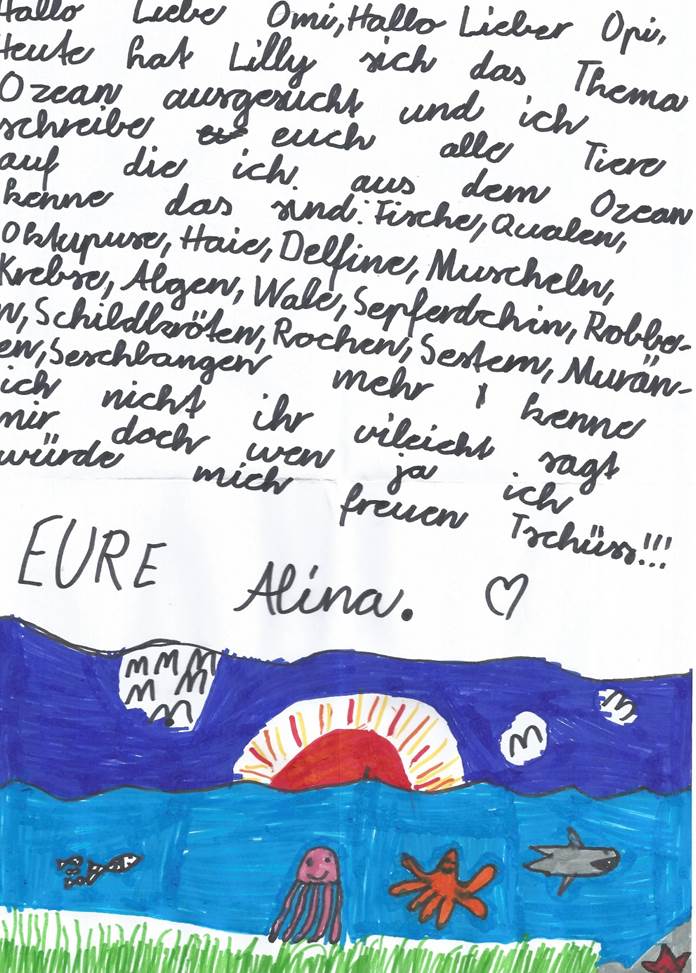 Hallo Liebe Omi, Hallo Lieber Opi,
Heute hat Lilly sich das Thema
Ozean ausgesucht und ich
schreibe euch alle Tiere
auf die ich aus dem Ozean
kenne das sind: Fische, Qualen,
Oktupuse, Haie, Delfine, Muscheln,
Krebse, Algen, Wale, Sepferdchin, Robbe-
n, Schildkröten, Rochen, Sestern, Murän-
en, Seschlangen mehr kenne
ich nicht ihr vileicht sagt
mir doch wen ja ich
würde mich freuen Tschüss!!!
EURE
Alina.